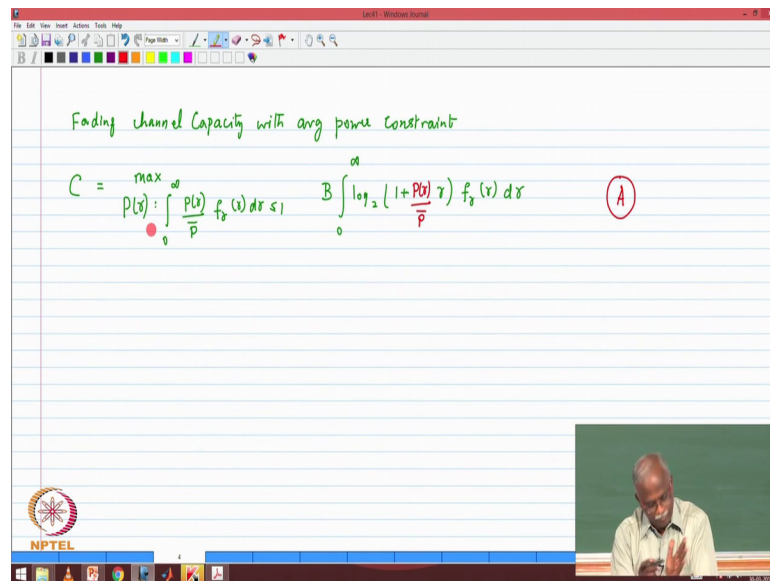 Lec41 - Windows Journal
File Edit View Insert Actions Tools Help
Page Width
B I
Fading channel Capacity with avg power constraint
C = max P(γ) : ∫₀^∞ P(γ)/P̄ f_γ(γ) dγ ≤ 1 B ∫₀^∞ log₂ (1 + P(γ)/P̄ γ) f_γ(γ) dγ A
NPTEL
4